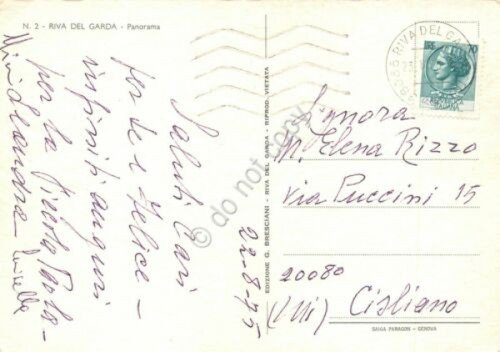 N. 2 - RIVA DEL GARDA - Panorama
Saluti Cari
per te e Felice -
infiniti auguri
per la Piccola Paola -
22-8-75
EDIZIONE G. BRESCIANI - RIVA DEL GARDA - RIPROD. VIETATA
RIVA DEL GA
LIRE 70
Signora
M. Elena Rizzo
Via Puccini 15
20080
(Mi) Cisliano
SAIGA PARAGON - GENOVA
do not copy